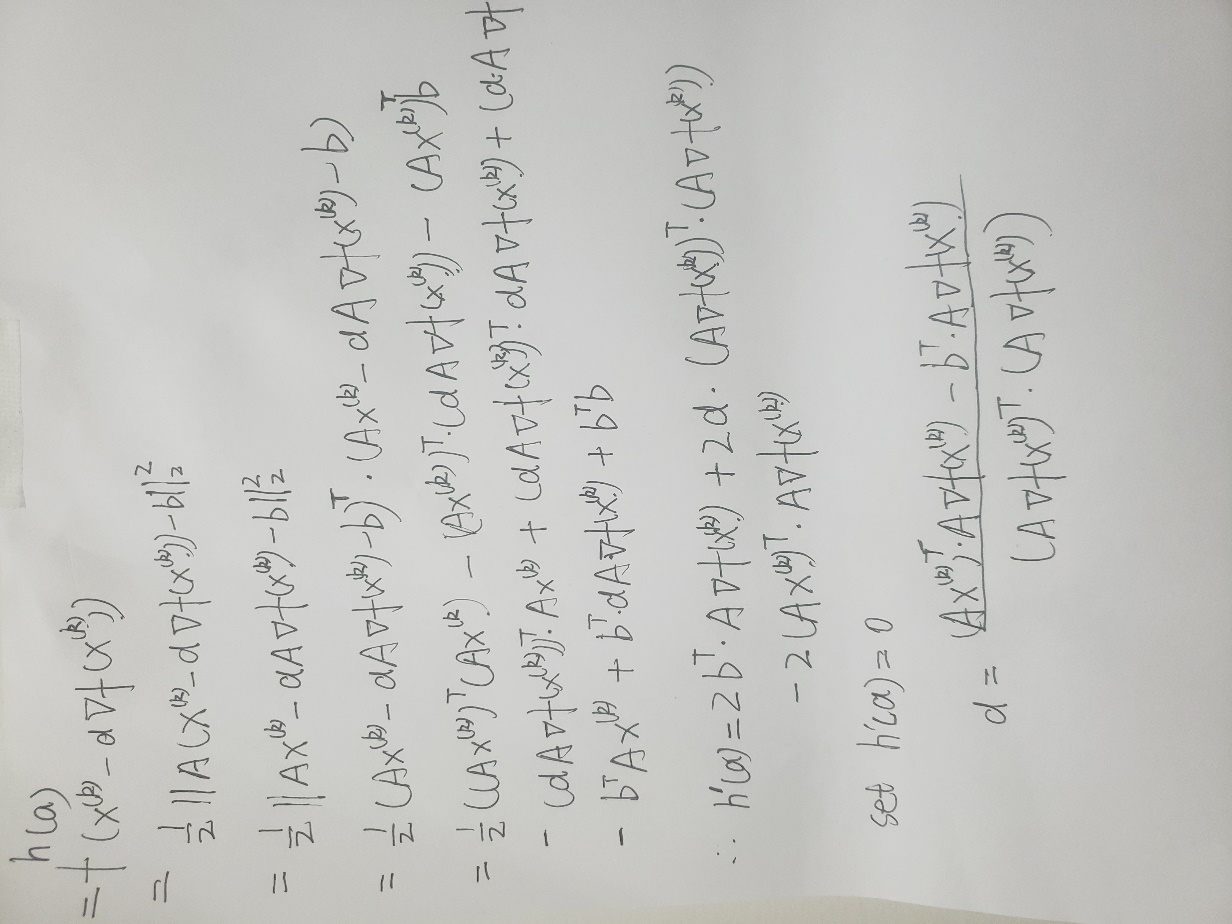 h(a)
= f(x^(k) - d∇f(x^(k)))
= 1/2 ||A(x^(k) - d∇f(x^(k))) - b||_2^2
= 1/2 ||Ax^(k) - dA∇f(x^(k)) - b||_2^2
= 1/2 (Ax^(k) - dA∇f(x^(k)) - b)^T · (Ax^(k) - dA∇f(x^(k)) - b)
= 1/2 ((Ax^(k))^T (Ax^(k)) - (Ax^(k))^T · (dA∇f(x^(k))) - (Ax^(k))^T b
- (dA∇f(x^(k)))^T · Ax^(k) + (dA∇f(x^(k)))^T · dA∇f(x^(k)) + (d·A∇f
- b^T Ax^(k) + b^T · dA∇f(x^(k)) + b^T b
∴ h'(a) = 2b^T · A∇f(x^(k)) + 2d · (A∇f(x^(k)))^T · (A∇f(x^(k)))
- 2(Ax^(k))^T · A∇f(x^(k))
set h'(a) = 0
d = (Ax^(k))^T · A∇f(x^(k)) - b^T · A∇f(x^(k))
(A∇f(x^(k)))^T · (A∇f(x^(k)))